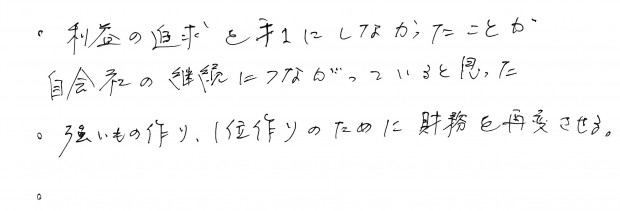 。利益の追求を第1にしなかったことが
自会社の継続につながっていると思った
。強いもの作り、1位作りのために財務を再変させる。
。